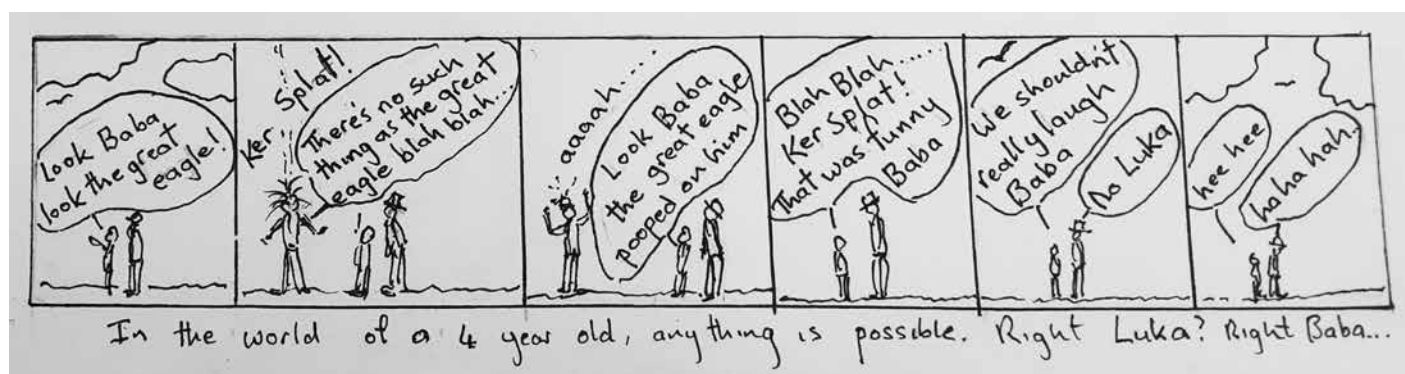 Look Baba
look the great
eagle!
Ker Splat!
There's no such
thing as the great
eagle blah blah...
aaaah....
Look Baba
the great eagle
pooped on him
Blah Blah.....
Ker Splat!
That was funny
Baba
We shouldn't
really laugh
Baba
No Luka
hee hee
hahahah
In the world of a 4 year old, anything is possible. Right Luka? Right Baba...